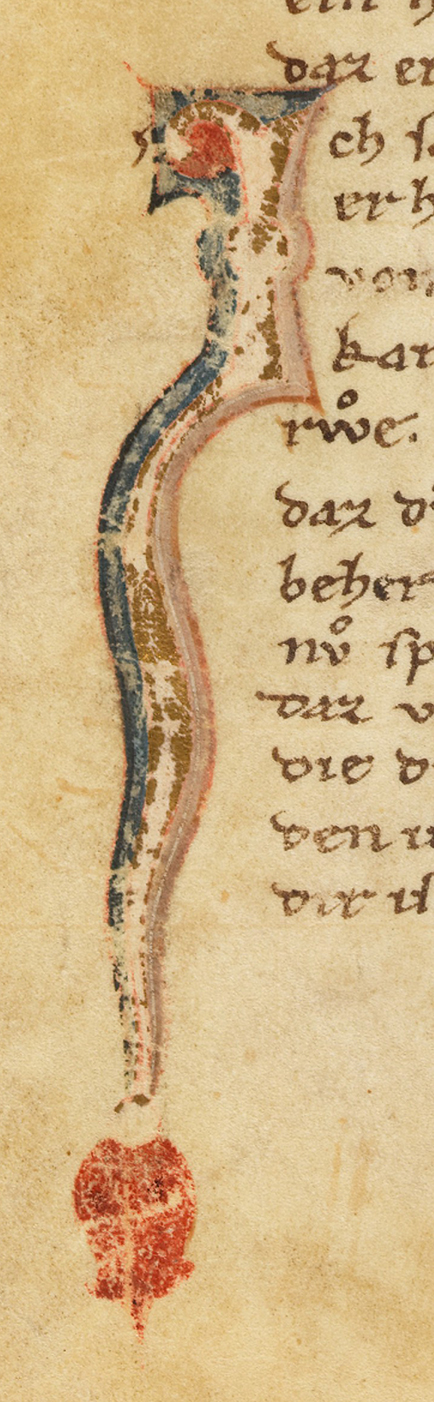 ein h
daz er
Ich sa
er h
von
kan
rwͦe.
daz d
beher
nvͦ sp
daz v
die d
den u
dir is